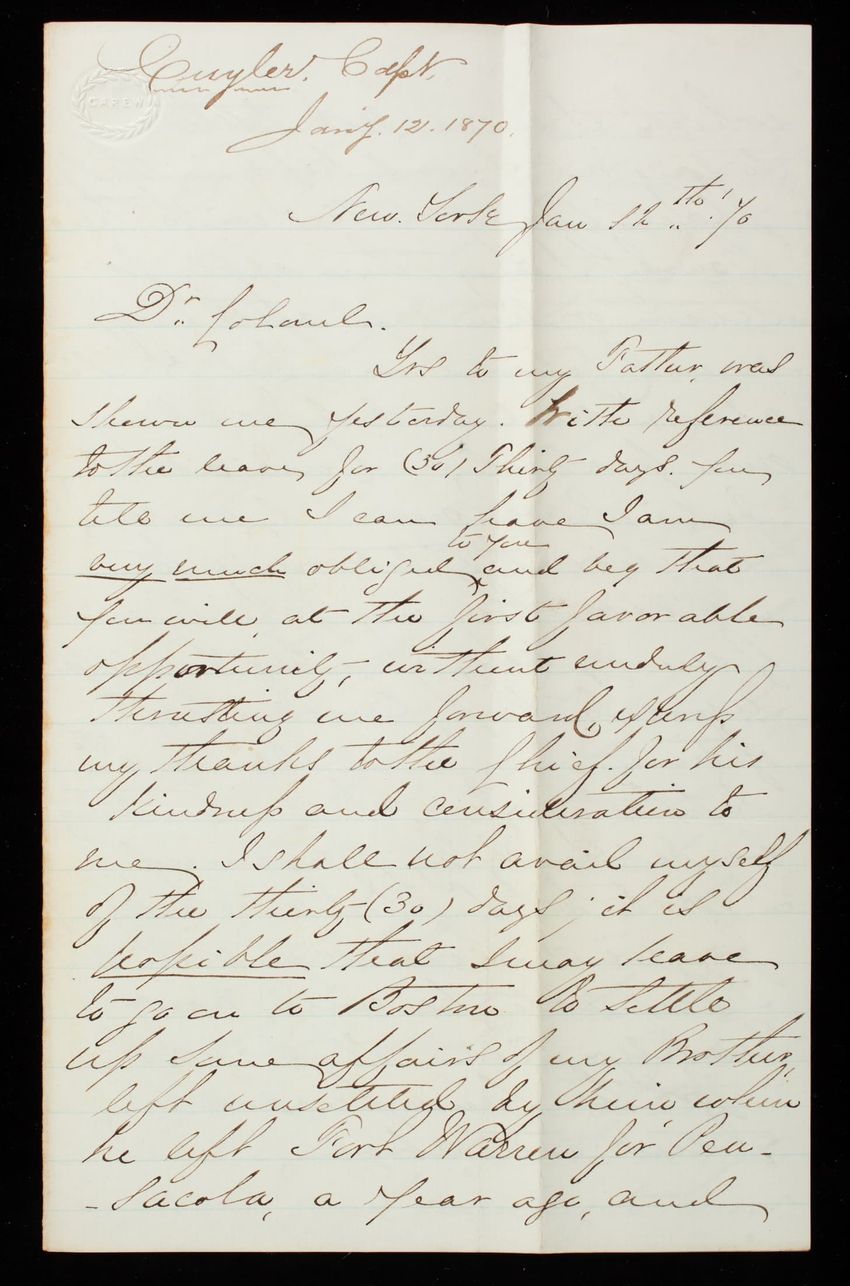 Cuyler. Capt.
CAREW
Jan'y. 12. 1870.
New. York Jan 12th '70
Dr. Colonel.
Yrs to my Father, was
shown me yesterday. With reference
to the leave for (30) Thirty days. you
tell me I can have I am
to you
very much obliged and beg that
you will, at the first favorable
opportunity, without unduly
thrusting me forward, express
my thanks to the Chief. for his
kindness and consideration to
me. I shall not avail myself
of the thirty (30) days; it is
possible that I may leave
to go on to Boston to settle
up some affairs of my Brother,
left unsettled by him when
he left Fort Warren for Pen-
-sacola, a year ago, and